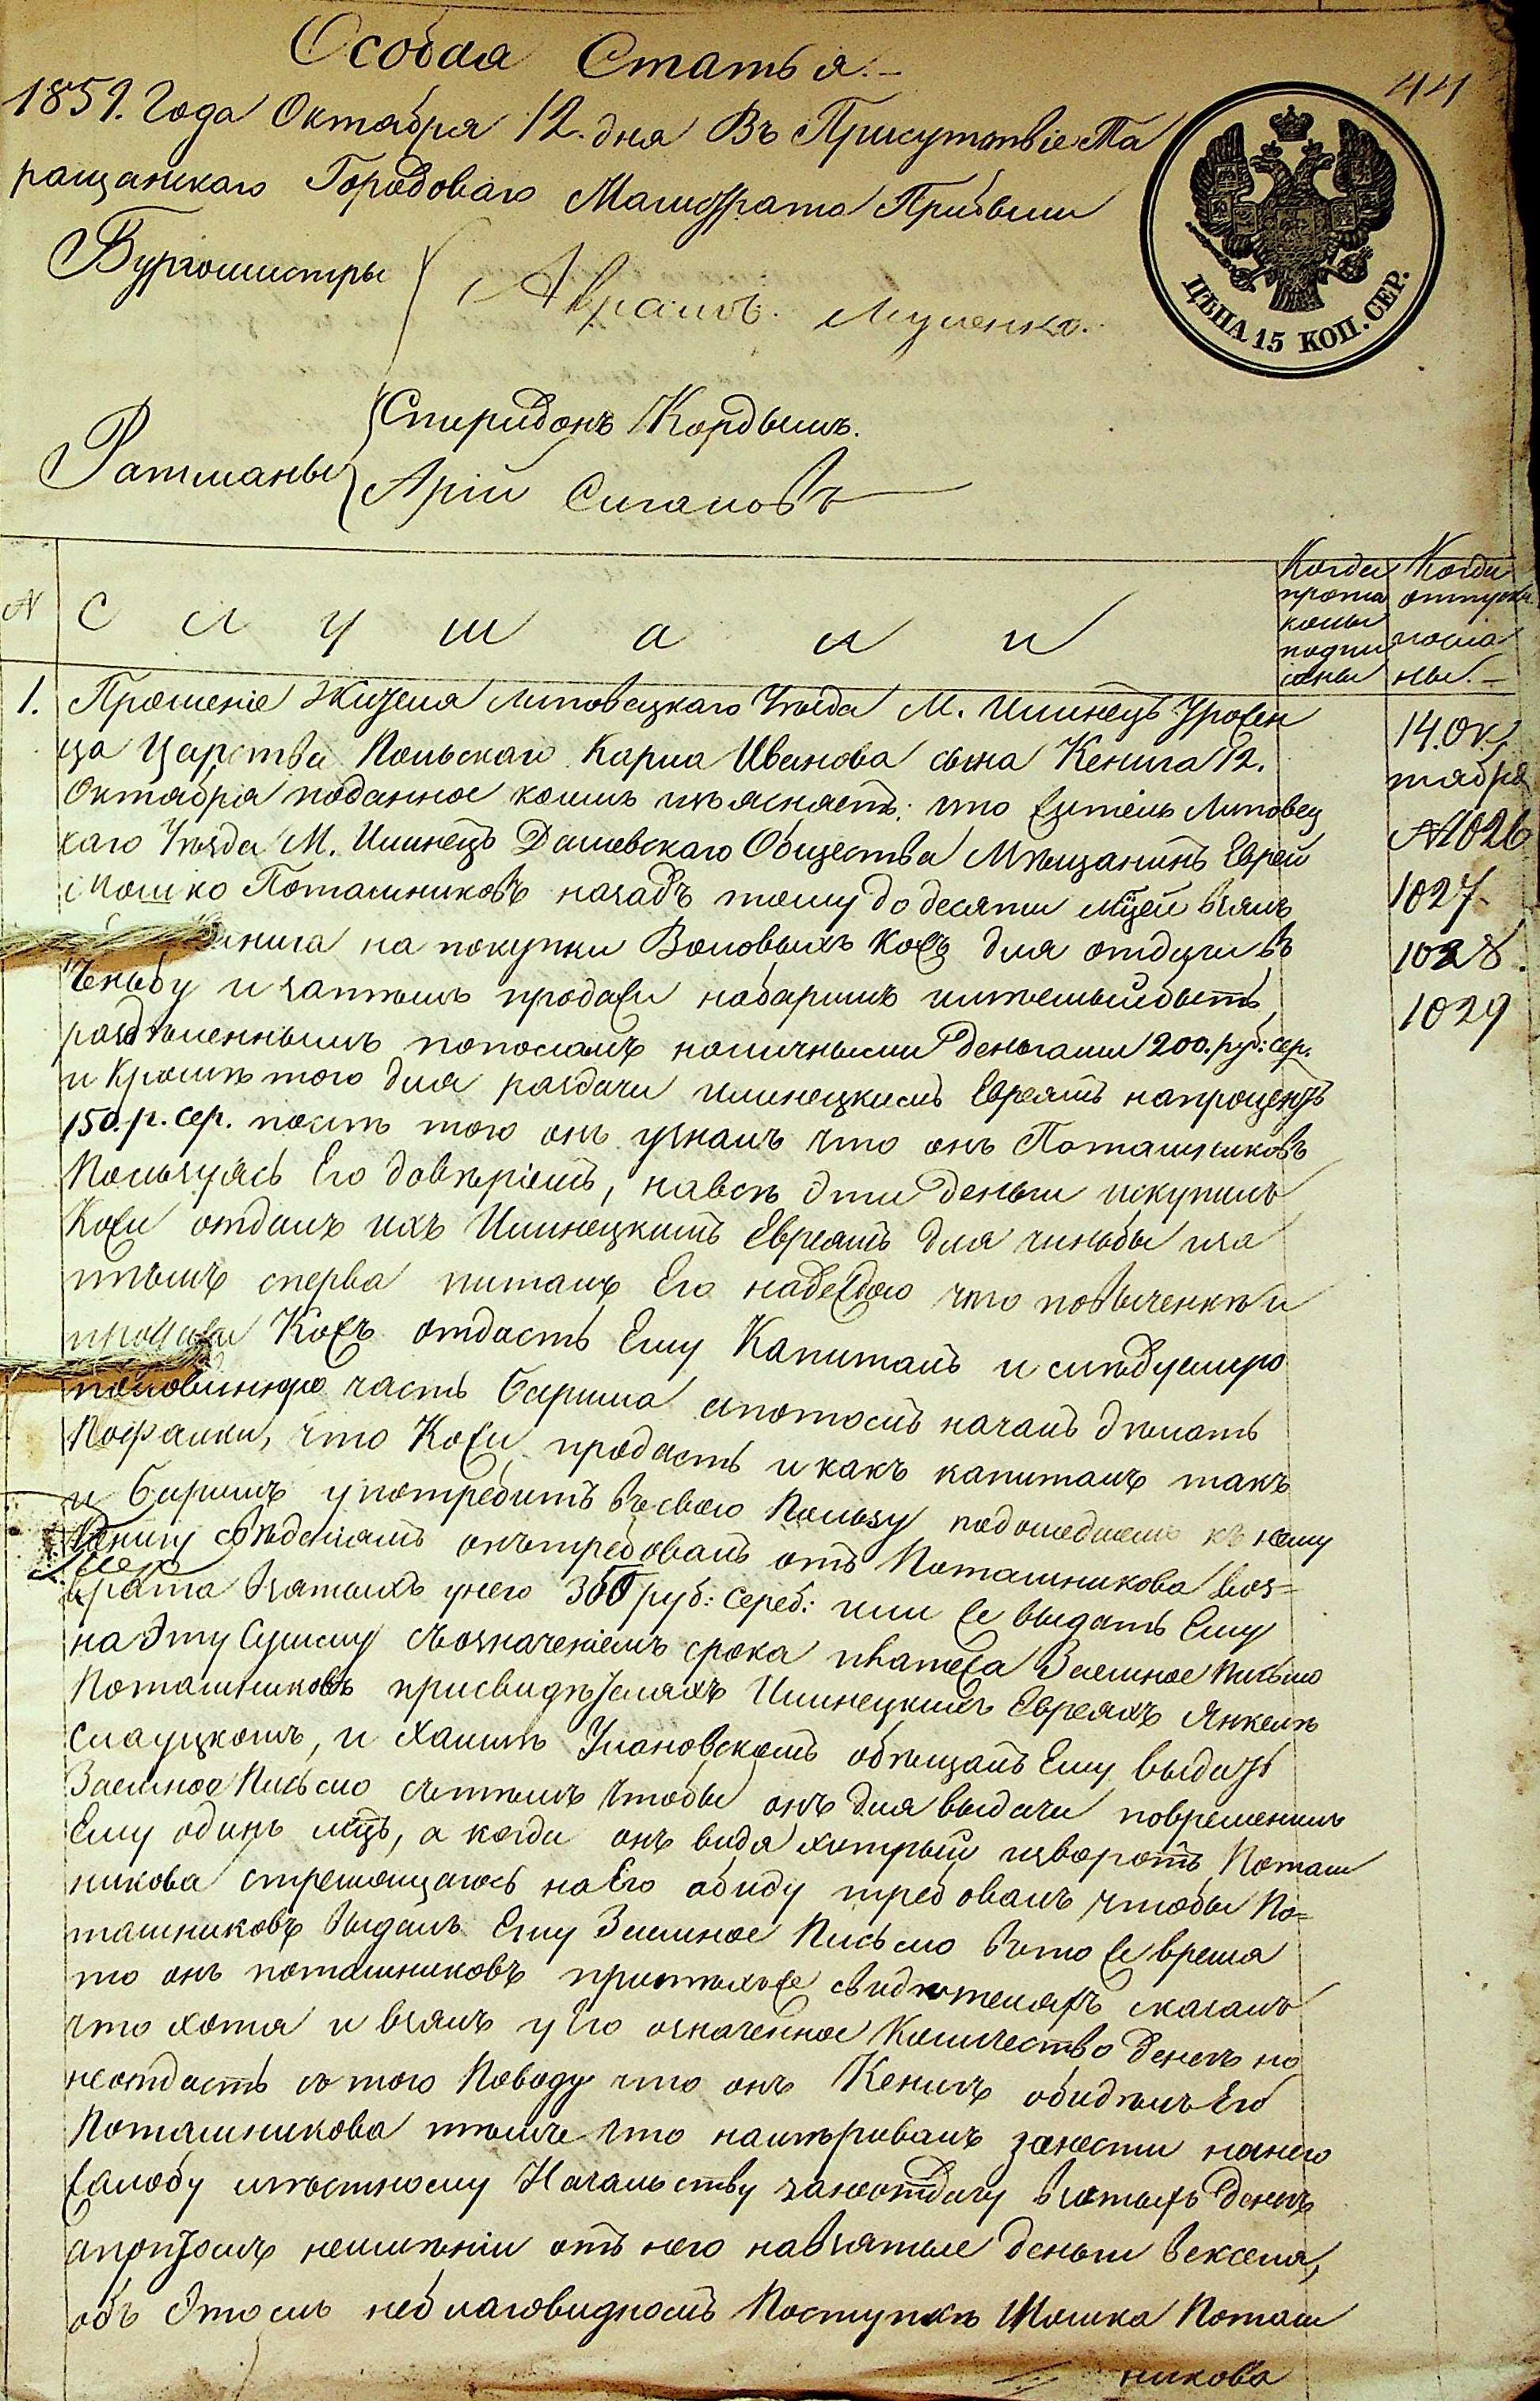 Особая Статья.-
44
1851. Года Октября 12. дня Въ Присутствіе Та
ращанскаго Городоваго Магистрата Прибыли
ЦѢНА 15 КОП. СЕР.
Бургомистры
Аврамъ
Ратманы
Спиридонъ Кордышъ.
Арій Сигаловъ
№
Слушали
Когда
прото
колы
подпи
саны
Когда
отпуски
посла
ны.-
1. Прошеніе Жителя Липовецкаго Уѣзда М. Илинецъ Урожен
ца Царства Польскаго Карла Иванова сына Кенига 12.
Октября поданное коимъ изъясняетъ: что житель Липовец
каго Уѣзда М. Илинецъ Дашевскаго Общества Мѣщанинъ Еврей
Мошко Поташниковъ назадъ тому до десяти мцей взялъ
нига на покупки Воловыхъ кожъ для отдачи въ
чиньбу и затѣмъ продажи набаришъ имѣемый быть
раздѣленнымъ пополамъ наличными деньгами 200. руб: сер.
и Кромѣ того для раздачи илинецкимъ Евреямъ напроцентъ
150. р. сер. послѣ того онъ узналъ что онъ Поташниковъ
Пользуясь Его довѣріемъ, навсѣ Эти деньги искупилъ
Кожи отдалъ ихъ Илинецкимъ Евреямъ для чиньбы иза
тѣмъ сперва питалъ Его надеждою что повычинкѣ и
продажи Кожъ отдастъ Ему Капиталъ и слѣдуемую
половинную часть бариша апотомъ началъ дѣлать
что Кожи продастъ и какъ капиталъ такъ
и баришъ употребитъ въсвою Пользу подошедшимъ къ нему
Кенигу свѣденіямъ онъ требовалъ отъ Поташникова воз=
врата взятыхъ унего 350 руб: Сереб: или же выдать Ему
на Эту Сумму съозначеніемъ срока платежа Заемное Письмо
Поташниковъ присвидѣтеляхъ Илинецкихъ Евреяхъ Янкелѣ
Слауцкомъ, и Хаимѣ Улановскомъ обѣщалъ Ему выдать
Заемное Письмо сътѣмъ чтобы онъ для выдачи повременилъ
Ему одинъ мцъ, а когда онъ видя хитрый изворотъ Поташ
никова стремящагось на Его обиду требовалъ чтобы По=
ташниковъ выдалъ Ему Заемное Письмо въто же время
то онъ поташниковъ притѣхъже свидѣтеляхъ сказалъ
что хотя и взялъ у Его означенное Количество денегъ но
неотдастъ съ того Поводу что онъ Кенигъ обидѣлъ Его
Поташникова тѣмъ что намѣривалъ занести нанего
жалобу мѣстному Начальству занеотдачу взятыхъ денегъ
апритомъ неимѣніи отъ него навзятые деньги векселя,
объ Этомъ неблаговидномъ Поступкѣ Мошка Поташ
никова
14. Ок
тября
№ 1026
1027
1028.
1029